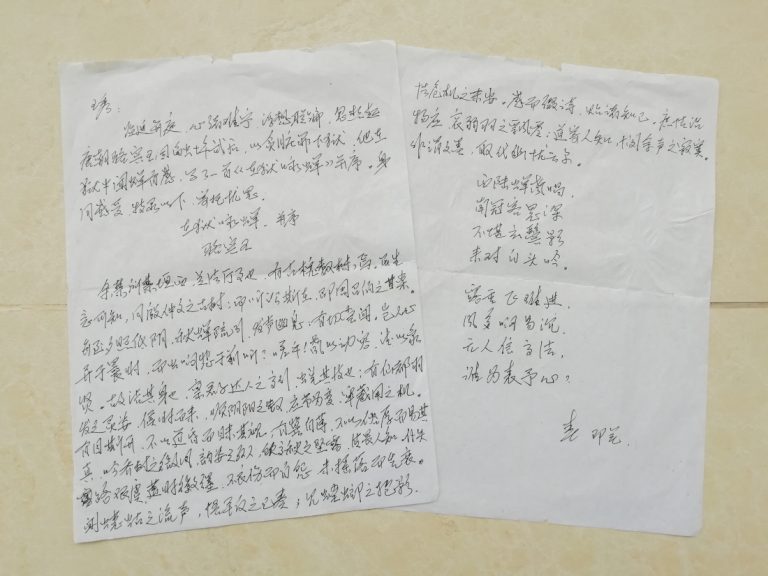 临近年夜,心绪难宁,
唐朝骆宾王因
狱中闻蝉有感,写了一首《在狱咏蝉》并序。身
同感受,特录以下,寄托忧思。
在狱咏蝉 并序
骆宾王
余禁所禁垣西,是法厅事也,有古槐数株焉。虽生
意可知,同殷仲文之古树;而听讼斯在,即周召伯之甘棠。
每至夕照低阴,秋蝉疏引,发声幽息,有切尝闻。岂人心
异于曩时,将虫响悲于前听?嗟乎!声以动容,德以象
贤。故洁其身也,禀君子达人之高行;蜕其皮也,有仙都羽
化之灵姿。候时而来,顺阴阳之数;应节为变,审藏用之机。
有目斯开,不以道昏而昧其视;有翼自薄,不以俗厚而易其
真。吟乔树之微风,韵姿天纵;饮高秋之坠露,清畏人知。仆失
路艰虞,遭时徽纆。不哀伤而自怨,未摇落而先衰。
闻蟪蛄之流声,悟平反之已奏;见螳螂之抱影,
怯危机之未安。感而缀诗,贻诸知己。庶情沿
物应,哀弱羽之飘零;道寄人知,悯余声之寂寞。
非谓文墨,取代幽忧云尔。
西陆蝉声唱,
南冠客思深。
不堪玄鬓影,
来对白头吟。
露重飞难进,
风多响易沉。
无人信高洁,
谁为表予心?